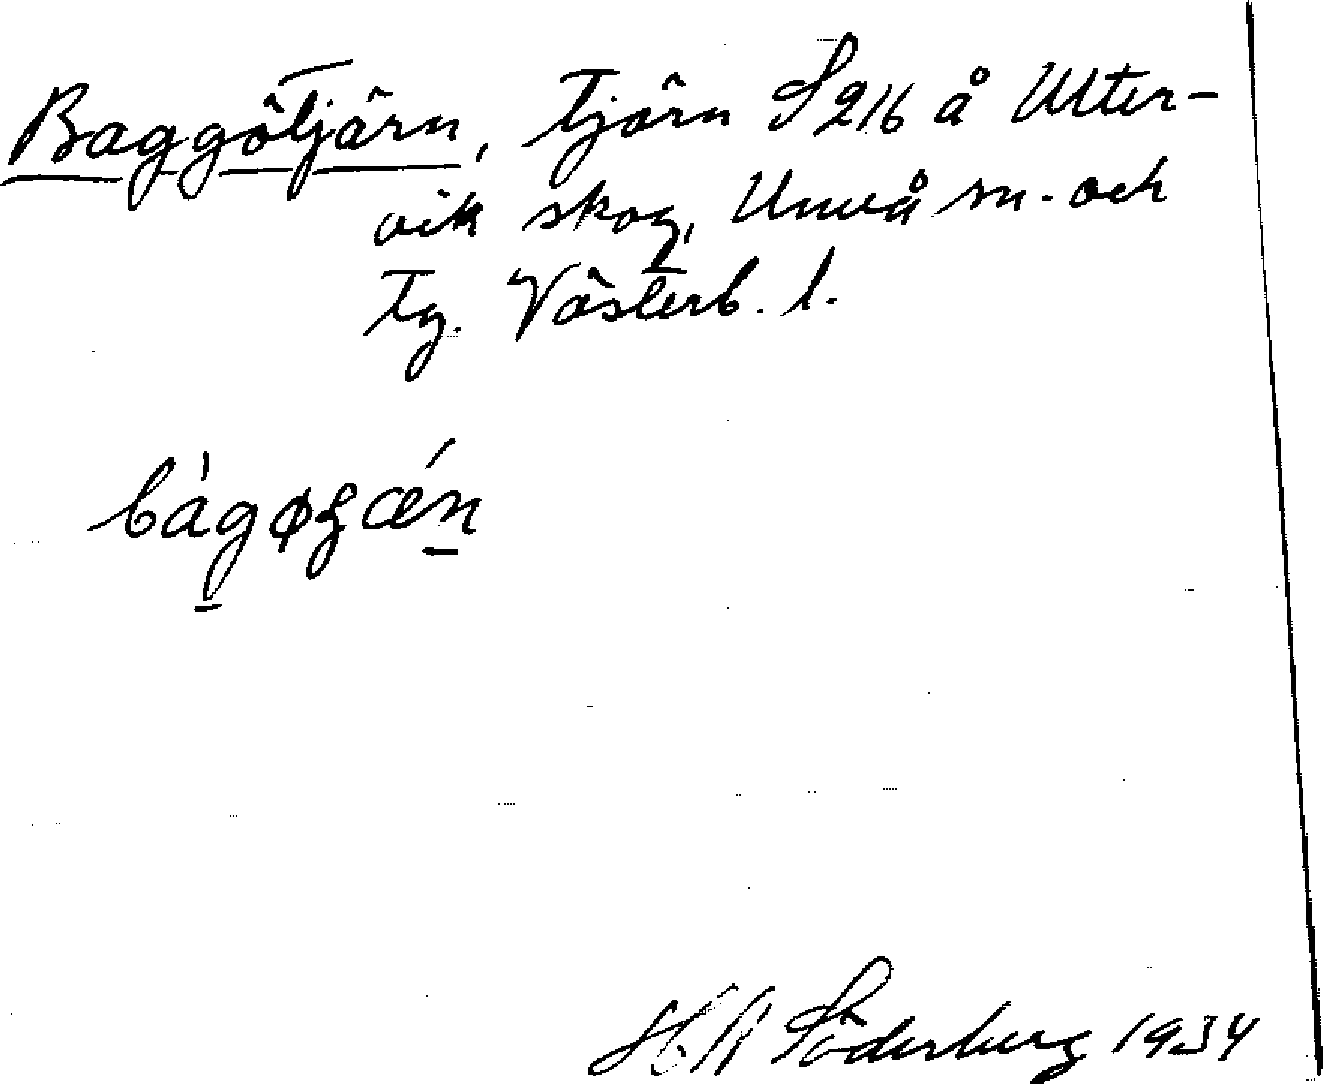 Baggötjärn, Tjärn S 216 å Ulter-
vik skog, Umeå sn. och
Tg. Västerb. l.
bàgøʒǽn
H. N. Söderberg 1934